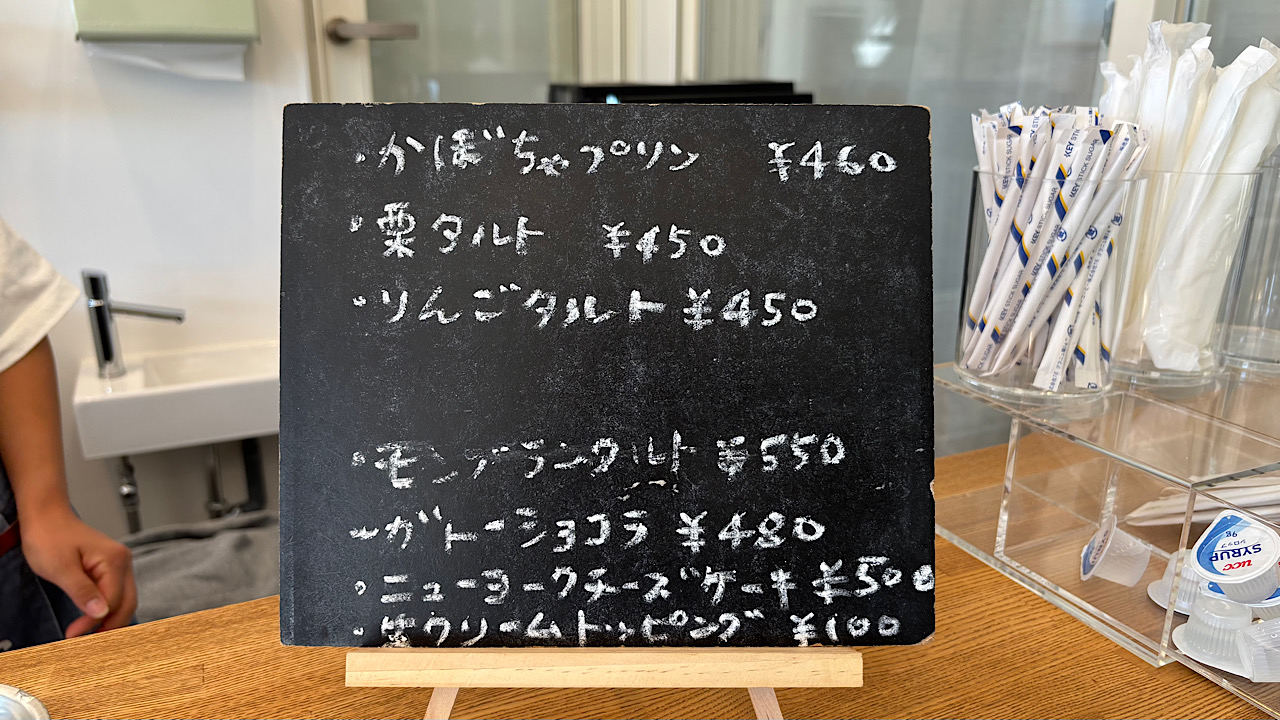 ・かぼちゃプリン ¥460
・栗タルト ¥450
・りんごタルト ¥450
・モンブランタルト ¥550
・ガトーショコラ ¥480
・ニューヨークチーズケーキ ¥500
・生クリームトッピング ¥100
KEY STICK SUGAR
KEY STICK SUGAR
KEY STICK SUGAR
ucc
SYRUP
シロップ 9g